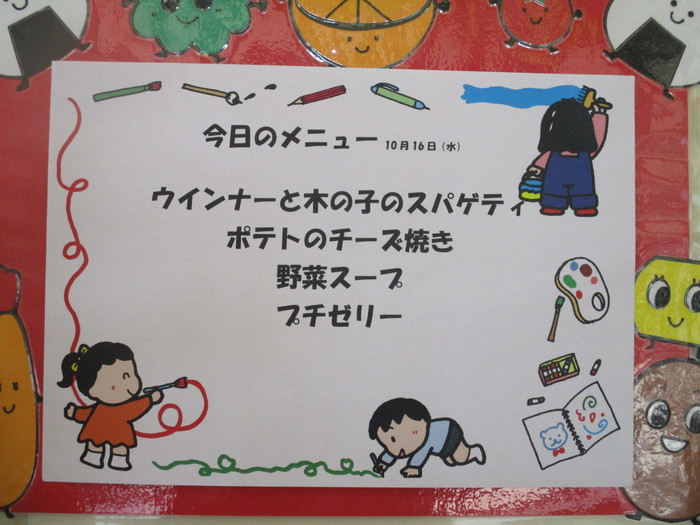 今日のメニュー 10月16日(水)
ウインナーと木の子のスパゲティ
ポテトのチーズ焼き
野菜スープ
プチゼリー